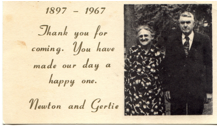 1897 - 1967
Thank you for
coming. You have
made our day a
happy one.
Newton and Gertie